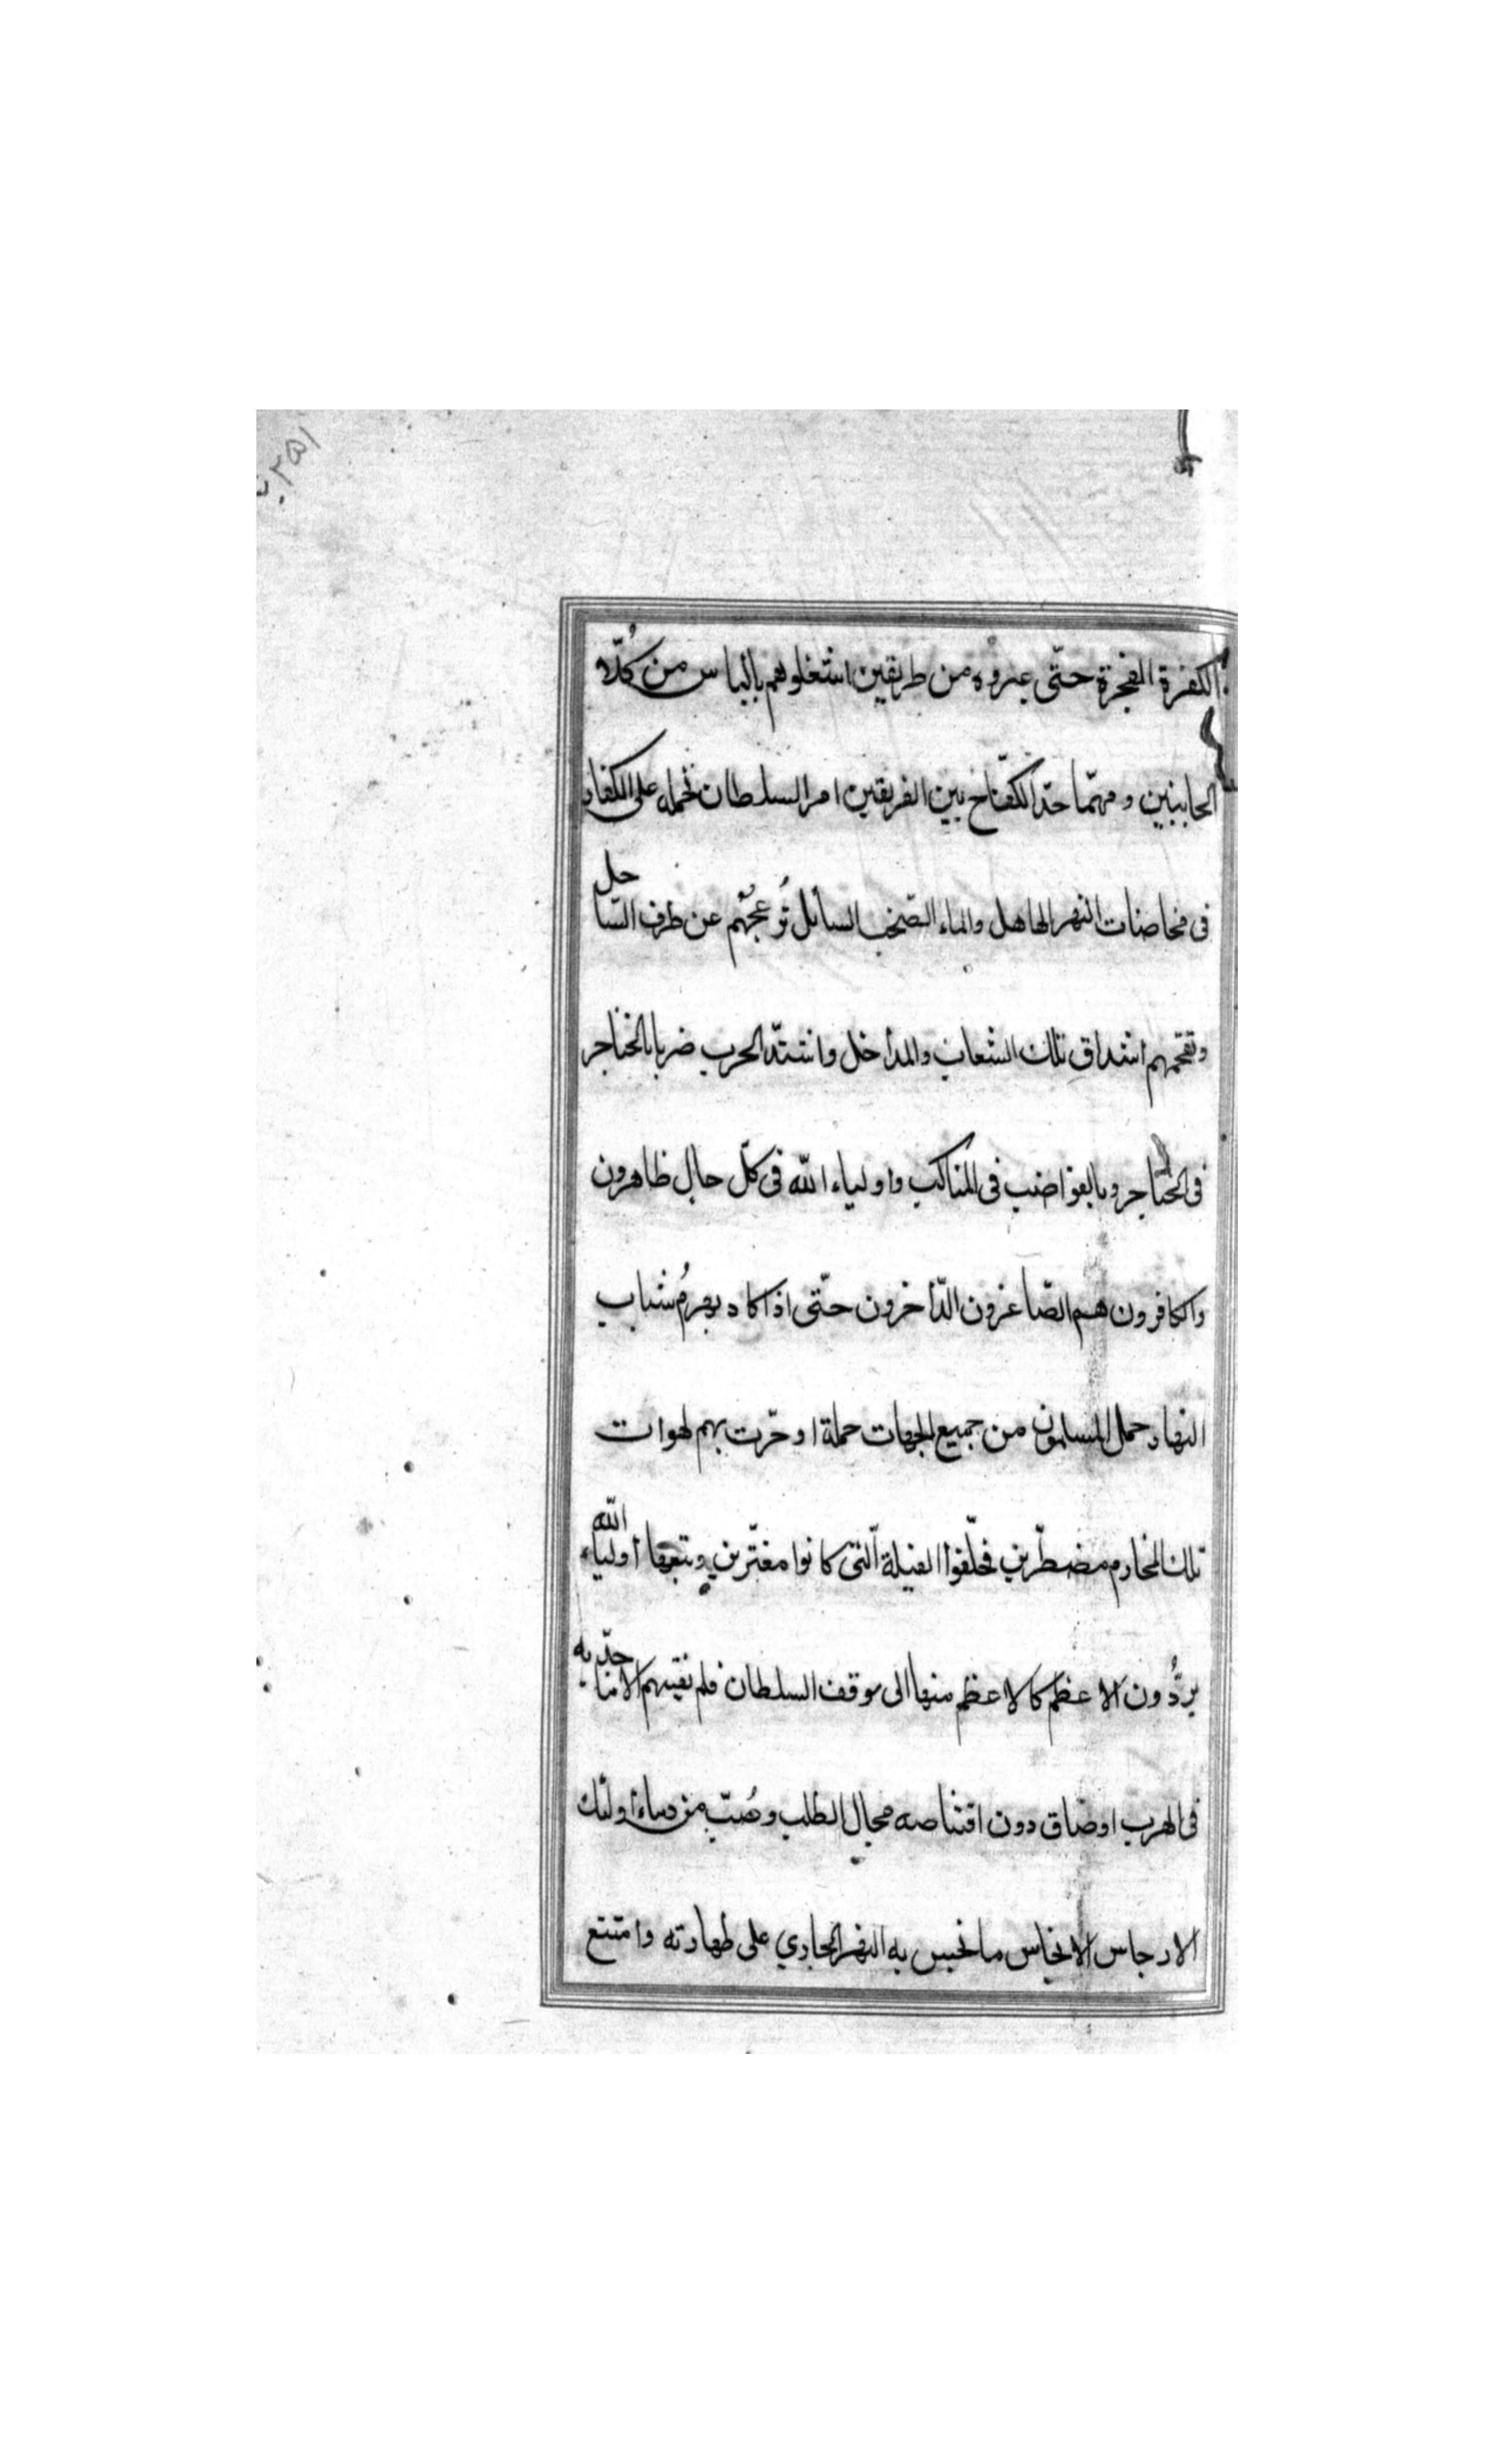 ٢٥١
الكفرة الفجرة حتّى عبروه من طريقين اشتغلوهم بالباس من كُلّا
الجانبين ومهمّا حدّ الكفّاح بين الفريقين امر السلطان بحمله على الكفار
فى مخاضات النهر الهاهل والماء الصّخب السائل تُوعجُهم عن طرف السّاحل
وتقحّمهم اشداق تلك الشعاب والمداخل واشتدّ الحرب ضربا بالخناجر
فى الحناجر وبالقواضب فى المناكب واولياء الله فى كلّ حال ظاهرون
والكافرون هم الصّاغرون الدّاخرون حتّى اذا كاد يهرمُ شباب
النهار حمل المسلمون من جميع الجهات حملة اوحرت بهم لهوات
تلك المخارم مضطرّين فخلّفوا الفيلة الّتى كانوا مغترّين وتتبعها أولياء الله
يردُّون الاعظم كالاعظم منها الى موقف السلطان فلم يفتهم الا ما جدّ به
فى الهرب اوضاق دون اقتناصه مجال الطلب وصُبّ من دماء أولئك
الارجاس الانجاس ما نجس به النهر الجاري على طهارته وامتنع